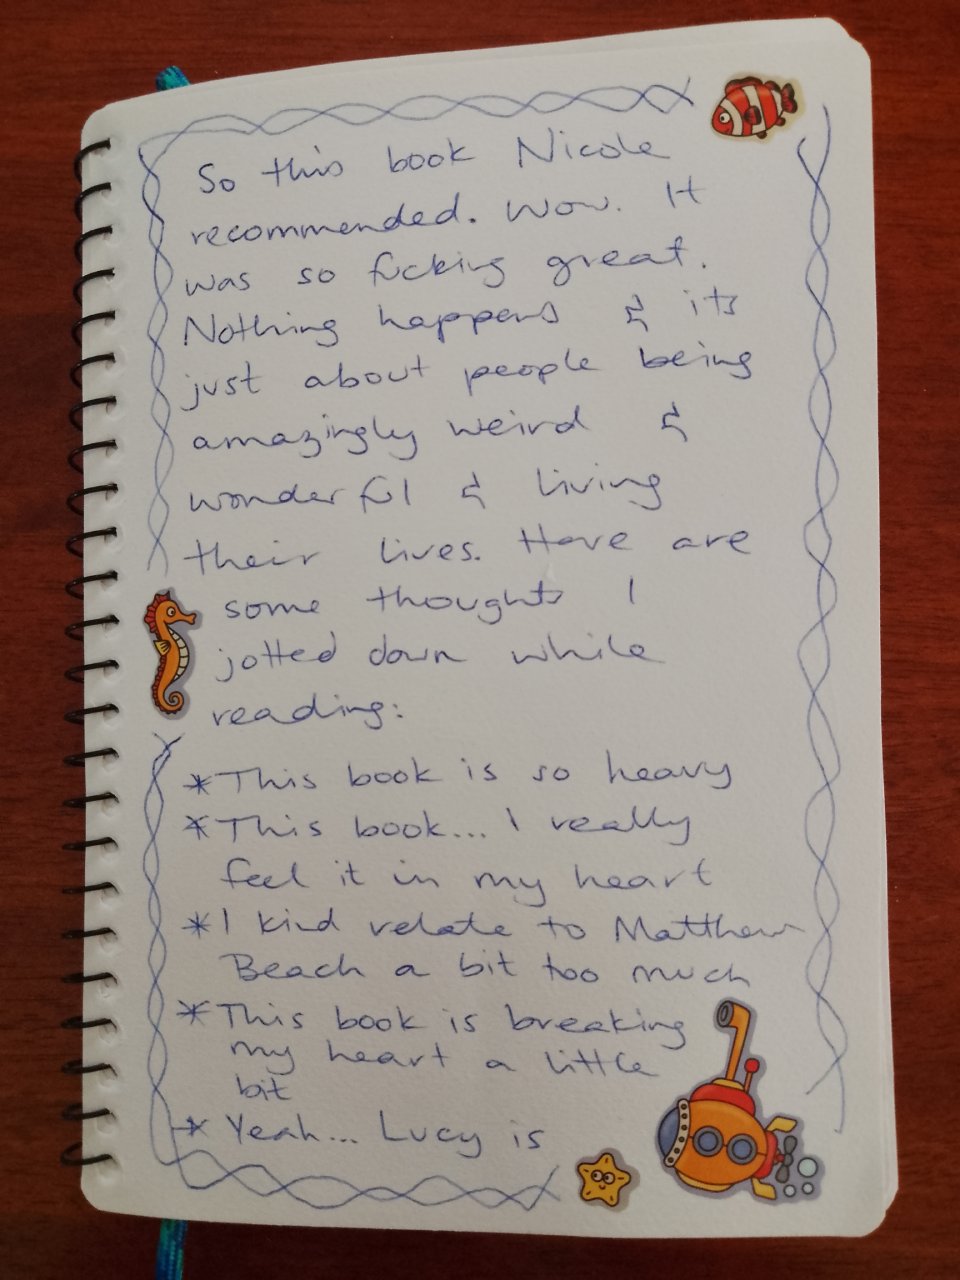 So this book Nicole
recommended. Wow. It
was so fucking great.
Nothing happens & its
just about people being
amazingly weird &
wonderful & living
their lives. Here are
some thoughts I
jotted down while
reading:
*This book is so heavy
*This book... I really
feel it in my heart
*I kind relate to Matthew
Beach a bit too much
*This book is breaking
my heart a little
bit
*Yeah... Lucy is